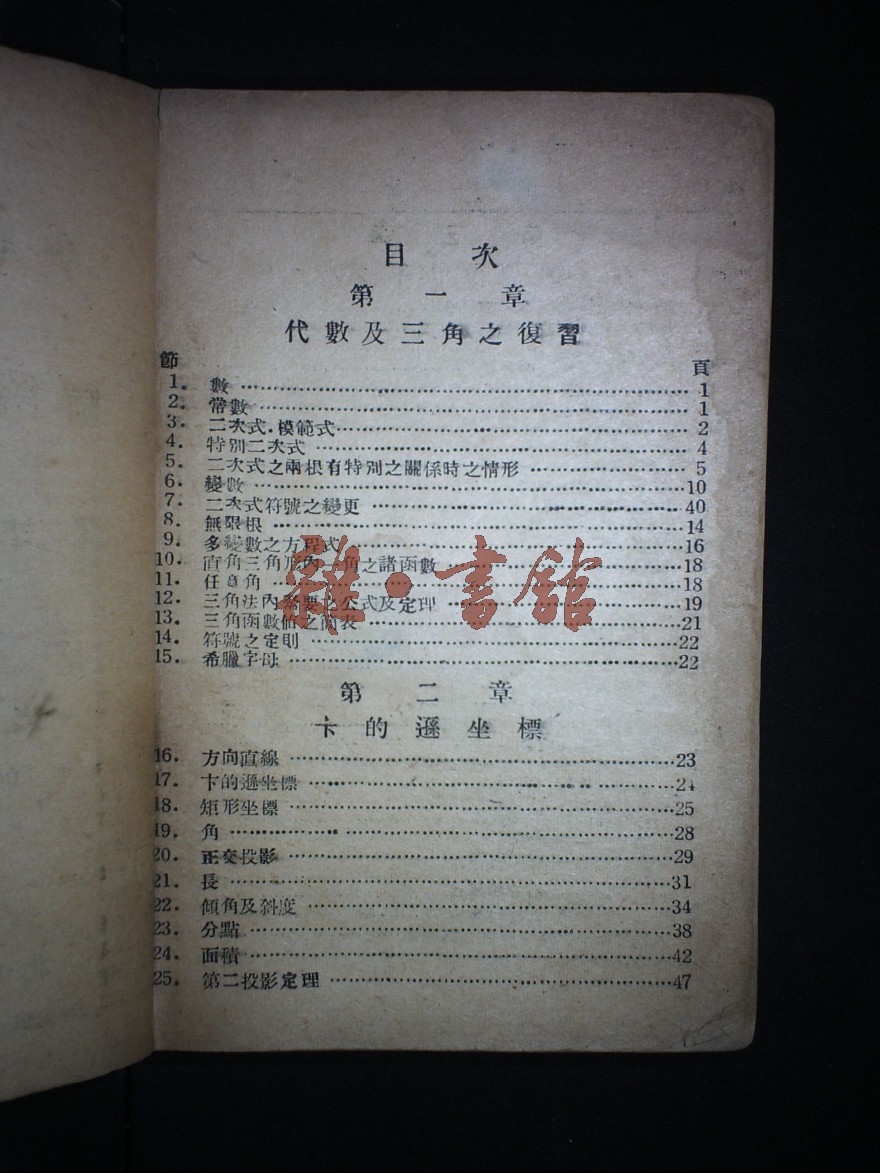 目次
第一章
代數及三角之復習
節 頁
1. 數 1
2. 常數 1
3. 二次式.模範式 2
4. 特別二次式 4
5. 二次式之兩根有特別之關係時之情形 5
6. 變數 10
7. 二次式符號之變更 40
8. 無限根 14
9. 多變數之方程式 16
10. 直角三角形內一角之諸函數 18
11. 任意角 18
12. 三角法內 要之公式及定理 19
13. 三角函數值之簡表 21
14. 符號之定則 22
15. 希臘字母 22
雜·書館
第二章
卞的遜坐標
16. 方向直線 23
17. 卞的遜坐標 24
18. 矩形坐標 25
19. 角 28
20. 正交投影 29
21. 長 31
22. 傾角及斜度 34
23. 分點 38
24. 面積 42
25. 第二投影定理 47